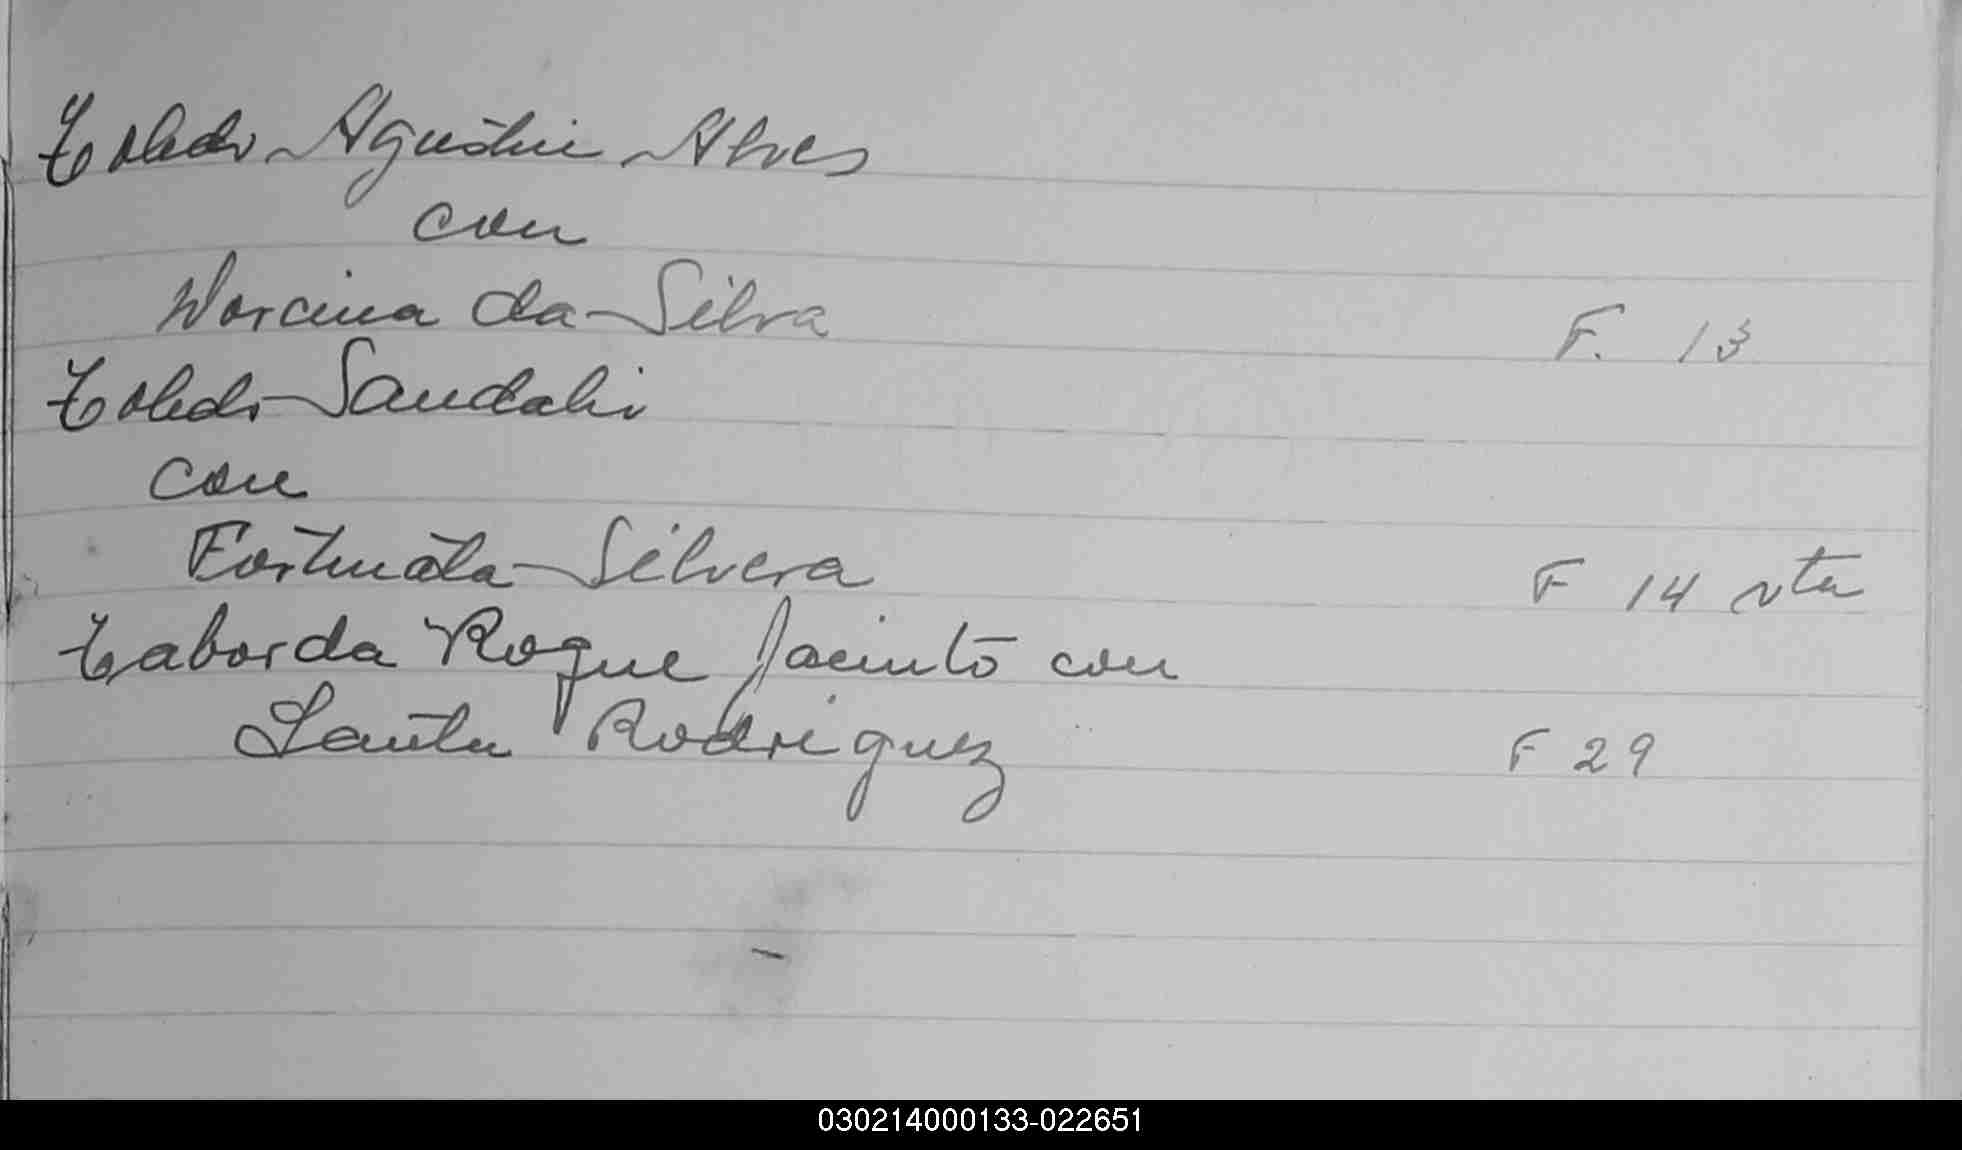 Toledo Agustin Alves
con
Dorcina da Silva F. 13
Toledo Sandalio
con
Fortunata Silvera F 14 vta
Taborda Roque Jacinto con
Santa Rodriguez F 29
030214000133-022651